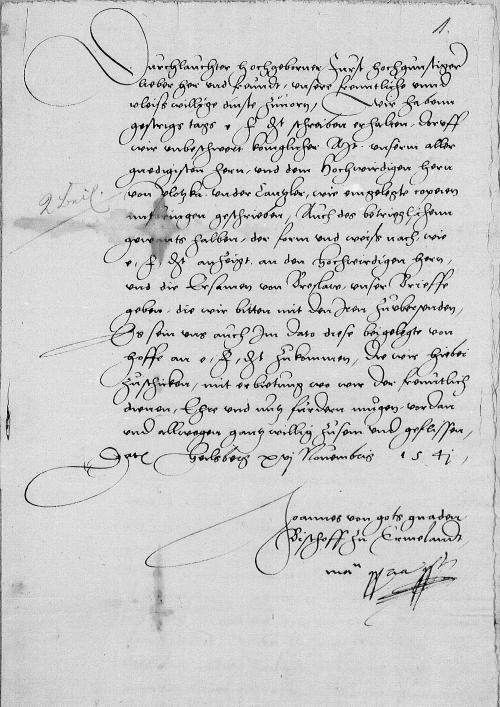 1.
Durchlauchter hochgeborner Furst hochgunstiger
lieber her und freundt, unsere freuntliche unnd
vleiss willige dinste zuvorn, Wir habenn
gestrigs tags e f dht schreiben erhalten, doruff
wir unbeschwert königlicher Mt unserm aller
gnedigisten hern, und dem hochwirdigen hern
von Plotzka under Cantzler, wie eingelegte copeien
mit bringen geschrieben, Auch des betruglichenn
halben, der form und weiss nach, wie
e f dht anzeigt, an den hochwirdigen hern,
und die Ersamen von Breslaw, unser Brieffe
geben, die wir bitten mit den Iren zuubersenden,
Es sein uns auch Im dato diese beigelegte von
hoffe an e f dht zukomen, die wir hiebei
zuschicken, mit erbietung wo wir der freuntlich
dienen, Ehre und nutz furdern mugen, vordan
und allwegen gantz willig zusein und geflissen,
Dat Heilsberg xvj Novembris 1541,
Joannes von gots gnaden
Bischoff zu Ermelandt